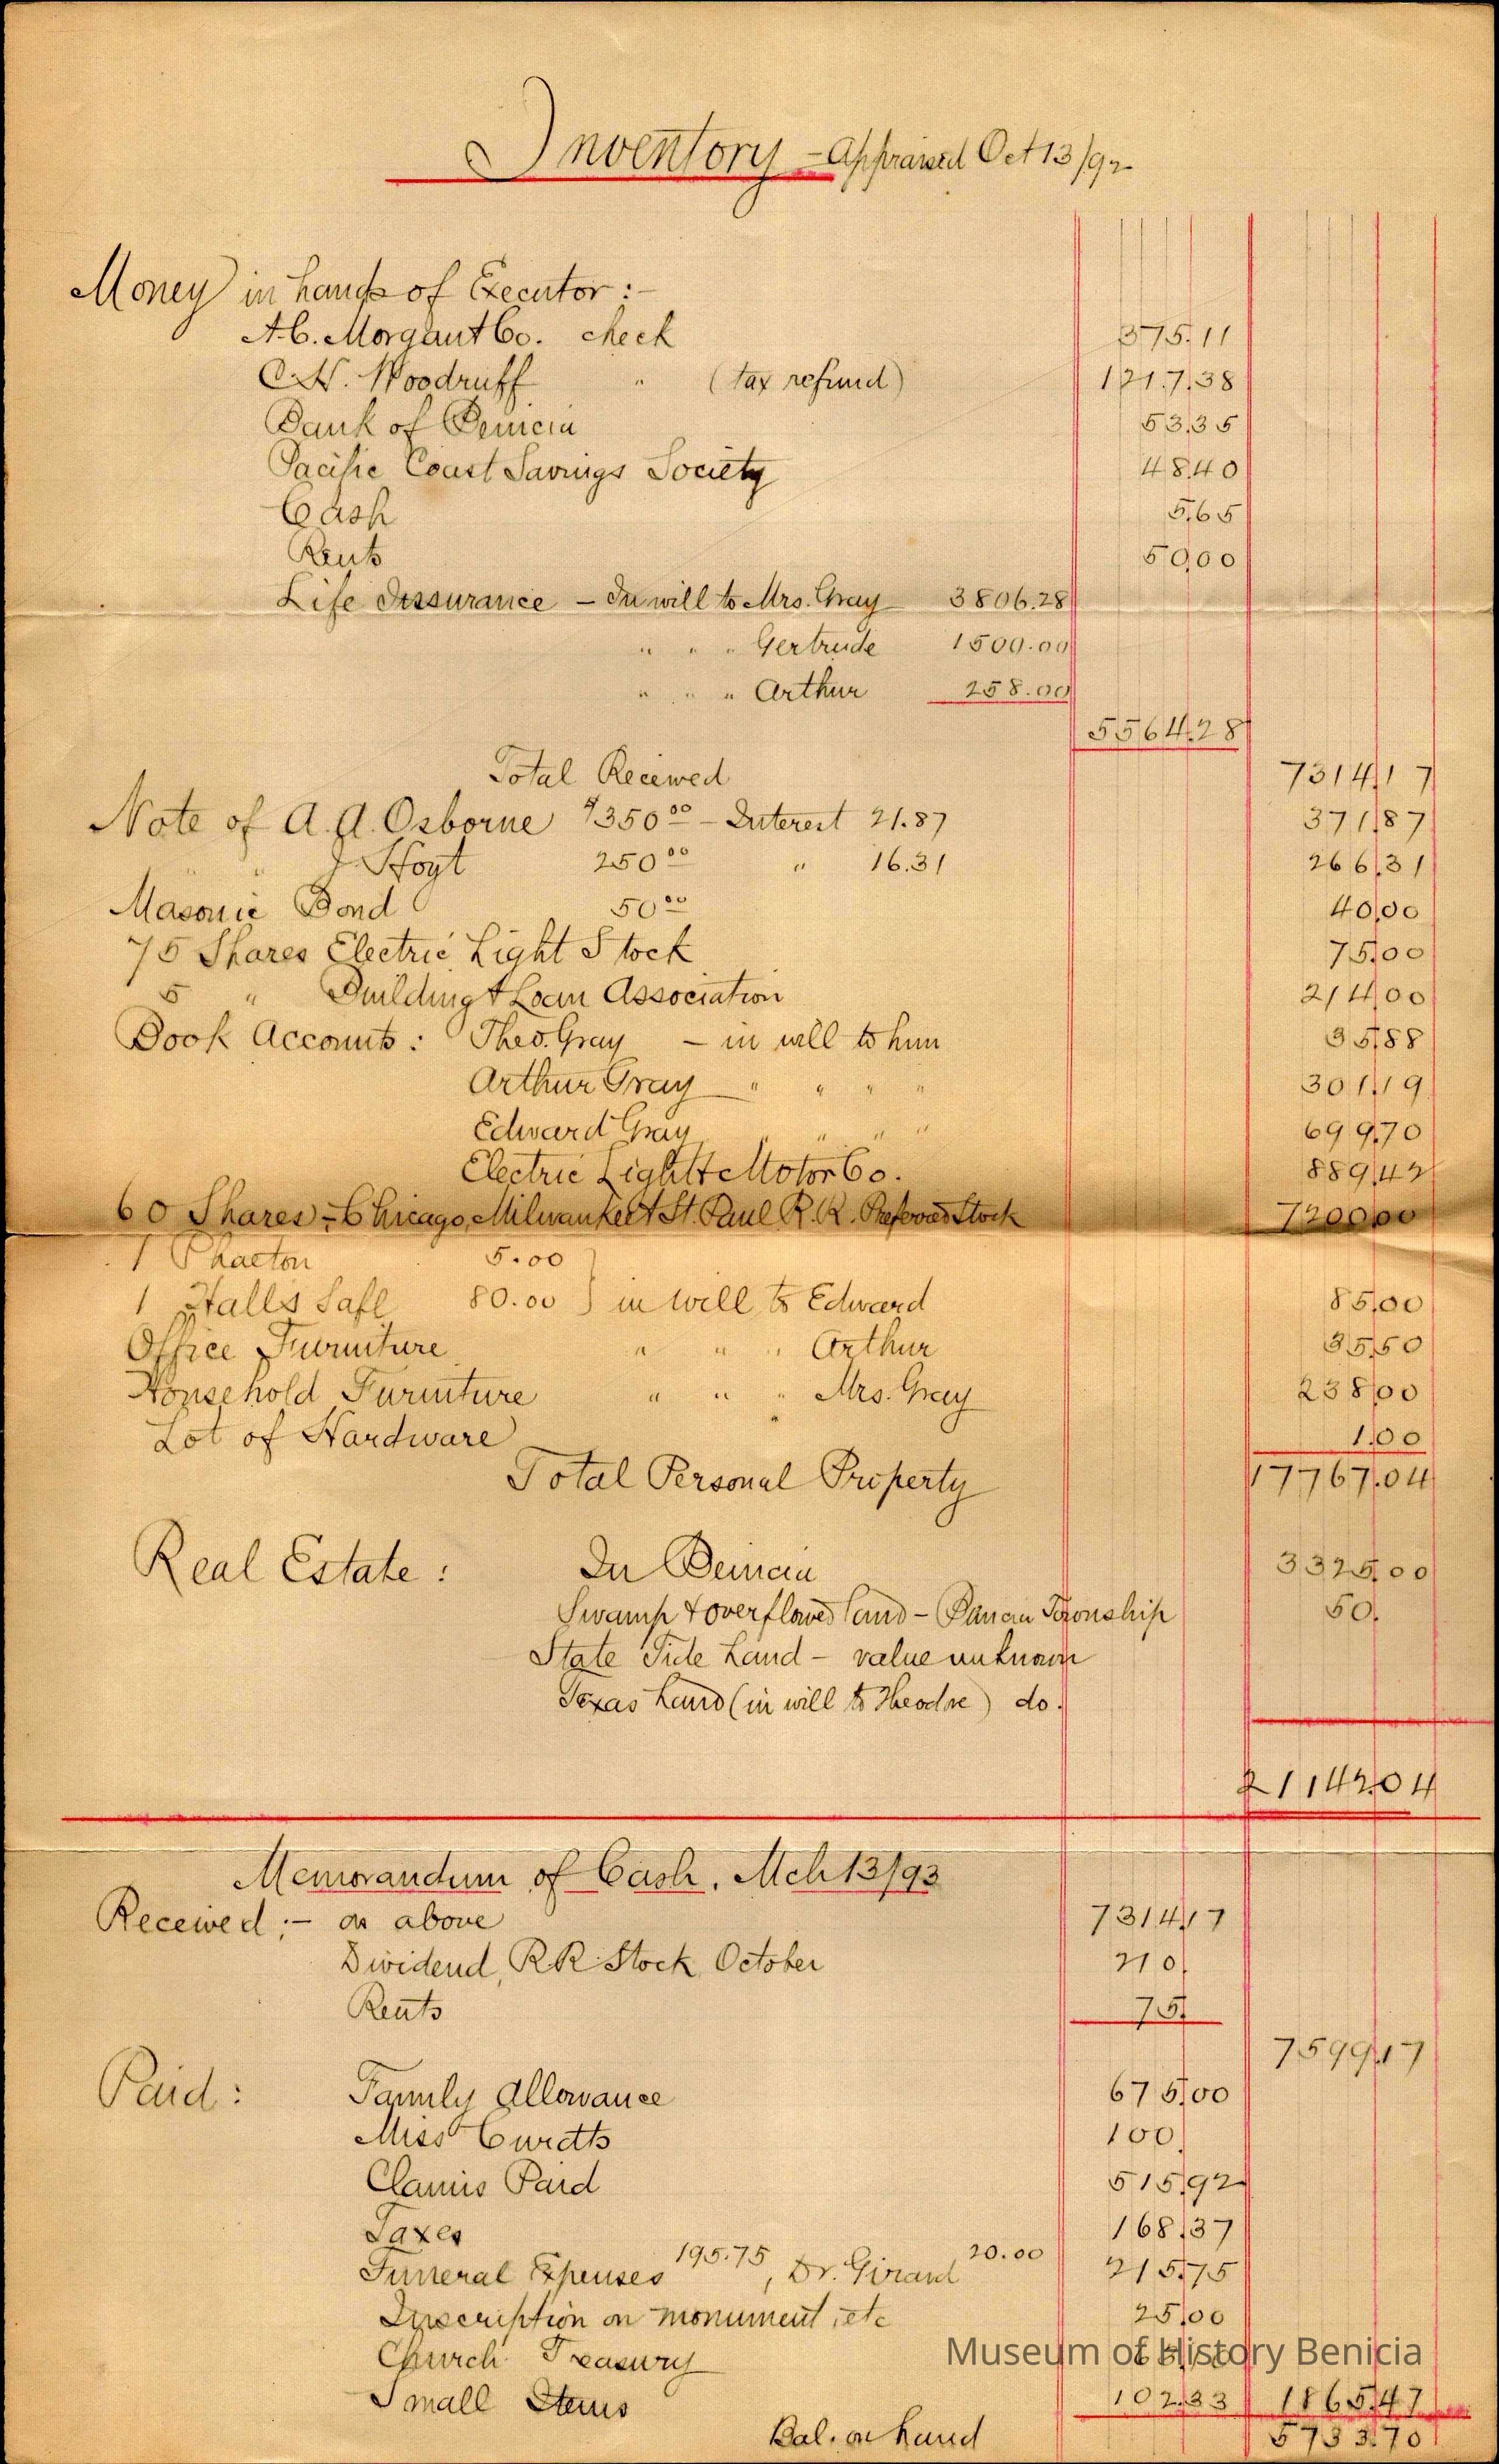 Inventory - Appraised Oct 13/92
Money in hands of Executor :-
A.C. Morgan & Co. check 375.11
C.N. Woodruff " (tax refund) 1217.38
Bank of Benicia 53.35
Pacific Coast Savings Society 48.40
Cash 5.65
Rents 50.00
Life Assurance - In will to Mrs. Gray 3806.28
" " " Gertrude 1500.00
" " " Arthur 258.00
5564.28
Total Received 7314.17
Note of A.A. Osborne $350.00 - Interest 21.87 371.87
" " J Hoyt 250.00 " 16.31 266.31
Masonic Bond 50.00 40.00
75 Shares Electric Light Stock 75.00
5 " Building & Loan Association 214.00
Book Accounts : Theo. Gray - in will to him 35.88
Arthur Gray " " " " 301.19
Edward Gray " " " " 699.70
Electric Light & Motor Co. 889.42
60 Shares - Chicago, Milwaukee & St. Paul R.R. Preferred Stock 7200.00
1 Phaeton 5.00
1 Hall's Safe 80.00 } in will to Edward 85.00
Office Furniture " " " Arthur 35.50
Household Furniture " " " Mrs. Gray 238.00
Lot of Hardware 1.00
Total Personal Property 17767.04
Real Estate : In Benicia 3325.00
Swamp & overflowed land - Township 50.
State Tide Land - value unknown
Texas Land (in will to Theodre) do.
21142.04
Memorandum of Cash, Mch 13/93
Received :- as above 7314.17
Dividend, RR Stock October 210.
Rents 75.
7599.17
Paid : Family Allowance 675.00
Miss 100.
Claims Paid 515.92
Taxes 168.37
Funeral Expenses 195.75, Dr. Girard 20.00 215.75
Inscription on monument, etc 25.00
Church Treasury
Museum of History Benicia
Small Items 102.33 1865.47
Bal. on hand 5733.70